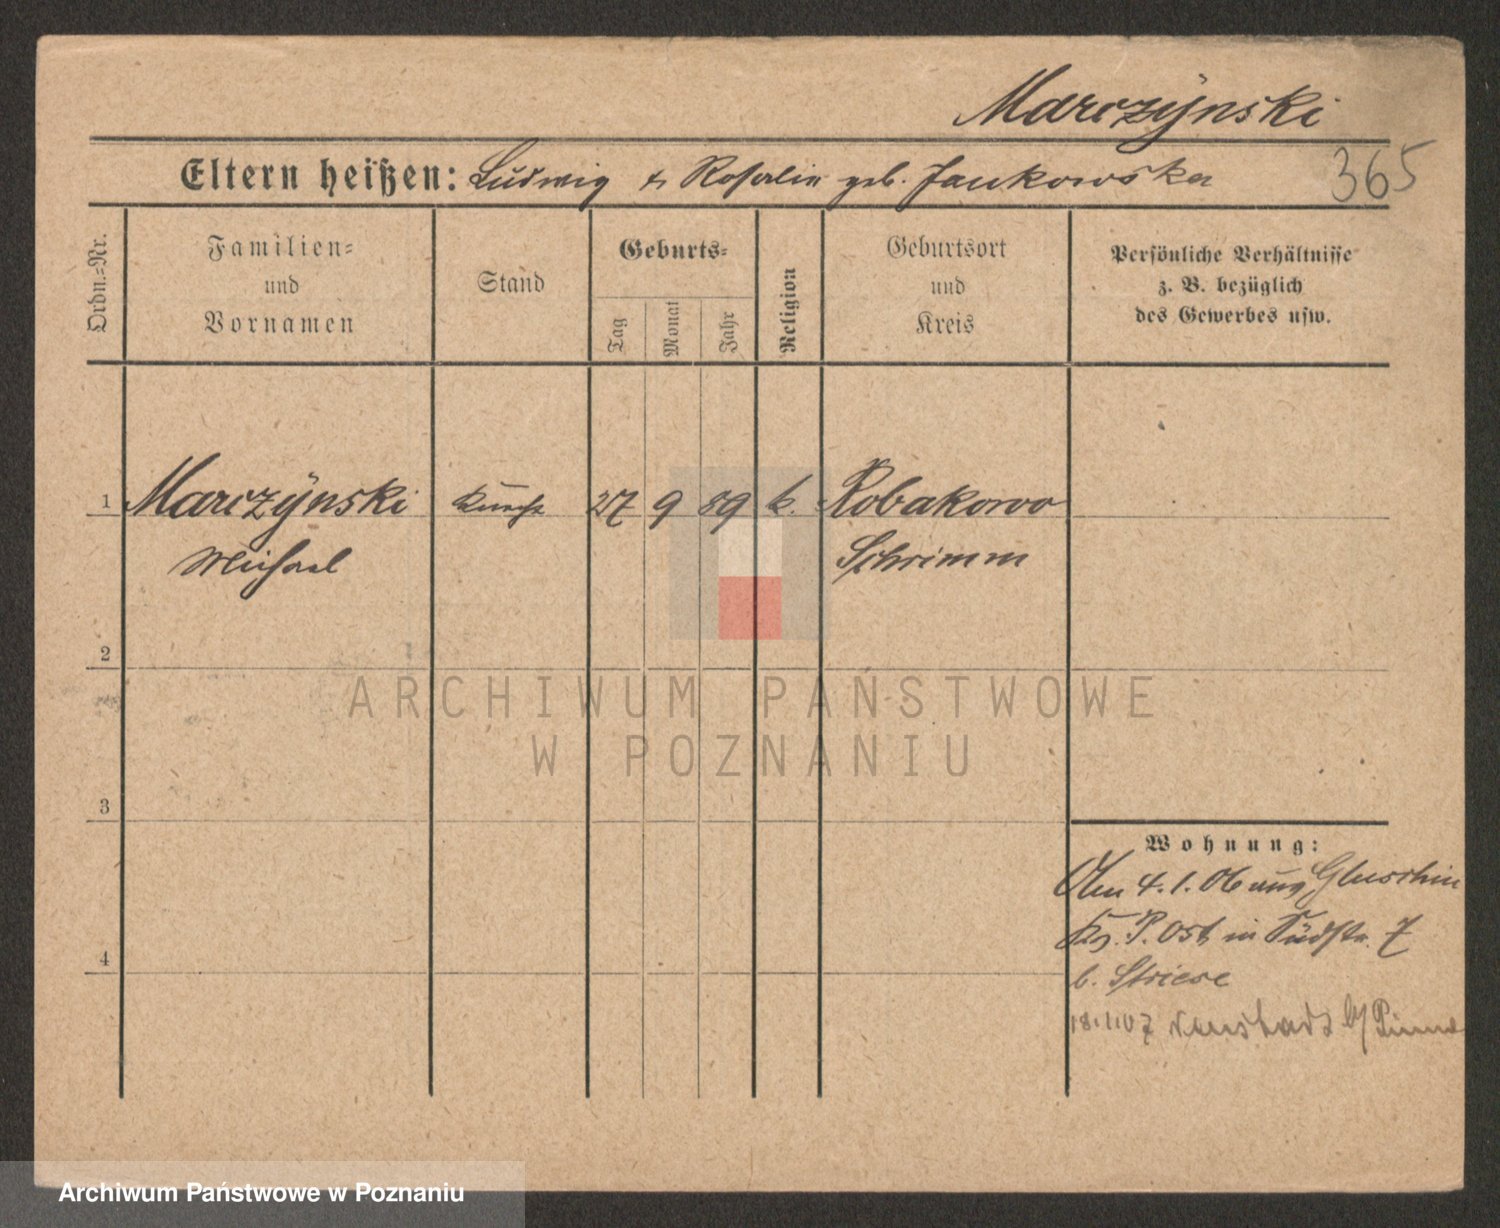 Marczÿnski
365
Eltern heißen: Ludwig & Rosalie geb. Jankowska
Ordn.-Nr.
Familien-
und
Vornamen
Stand
Geburts-
Tag
Monat
Jahr
Religion
Geburtsort
und
Kreis
Persönliche Verhältnisse
z. B. bezüglich
des Gewerbes usw.
1 Marczÿnski Knecht 27 9 89 k. Robakowo
Michael Schrimm
2
3
4
Wohnung:
4.1.06 Gluschin
P. Ost in Südstr. 7
b. Striese
18.1.07 Neustadt b/Pinne
ARCHIWUM PAŃSTWOWE
W POZNANIU
Archiwum Państwowe w Poznaniu